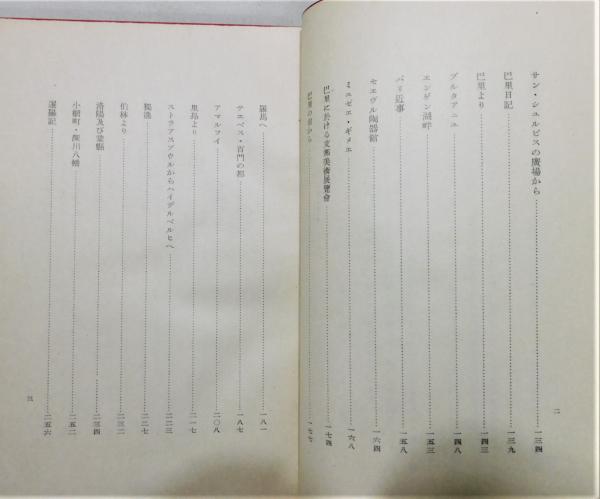 サン・シュルピスの廣場から……一三四
巴里日記……一三九
巴里より……一四三
ブルタアニユ……一四八
エンゲン湖畔……一五三
パリ近事……一五八
セエヴル陶器館……一六四
ミユゼエ・ギメエ……一六八
巴里に於ける支那美術展覽會……一七四
巴里の宿から……一七七
二
羅馬へ……一八一
テエベス・百門の都……一八七
アマルフイ……二〇八
里昂より……二一七
ストラアスブウルからハイデルベルヒへ……二二三
獨逸……二二七
伯林より……二三二
洛陽及び鞏縣……二三四
小網町・深川八幡……二五二
運騙記……二五六
三